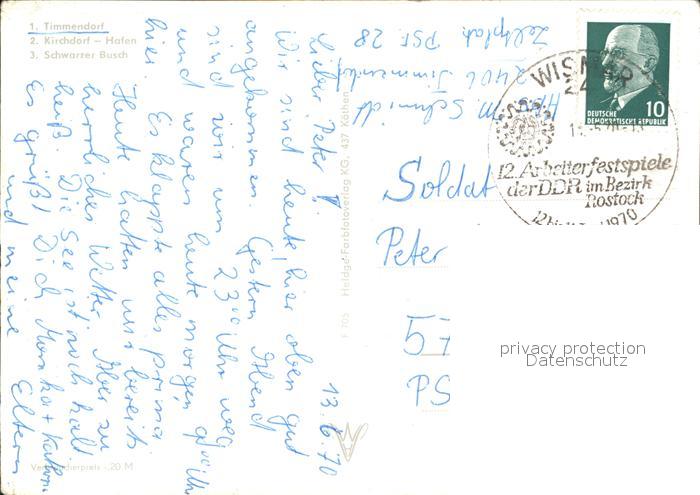 1. Timmendorf
2. Kirchdorf – Hafen
3. Schwarzer Busch
13.6.70
Lieber Peter!
Wir sind heute hier oben gut
angekommen. Gestern Abend
sind wir um 23⁰⁰ Uhr weg
und waren heute morgen Uhr
hier. Es klappte alles prima.
Heute hatten wir bereits
herrliches Wetter. Aber zu
heiß. Die See ist noch kalt.
Es grüßt Dich Monika +
und meine Eltern
Verbraucherpreis -,20 M
F 705 Heldge-Farbfotoverlag KG. 437 Köthen
Schmidt
2406 Timmendorf
Zeltplatz PSF. 28
Soldat
Peter
57
PS
WISMAR
12. Arbeiterfestspiele
der DDR im Bezirk
Rostock
1970
DEUTSCHE
DEMOKRATISCHE REPUBLIK
10
privacy protection
Datenschutz